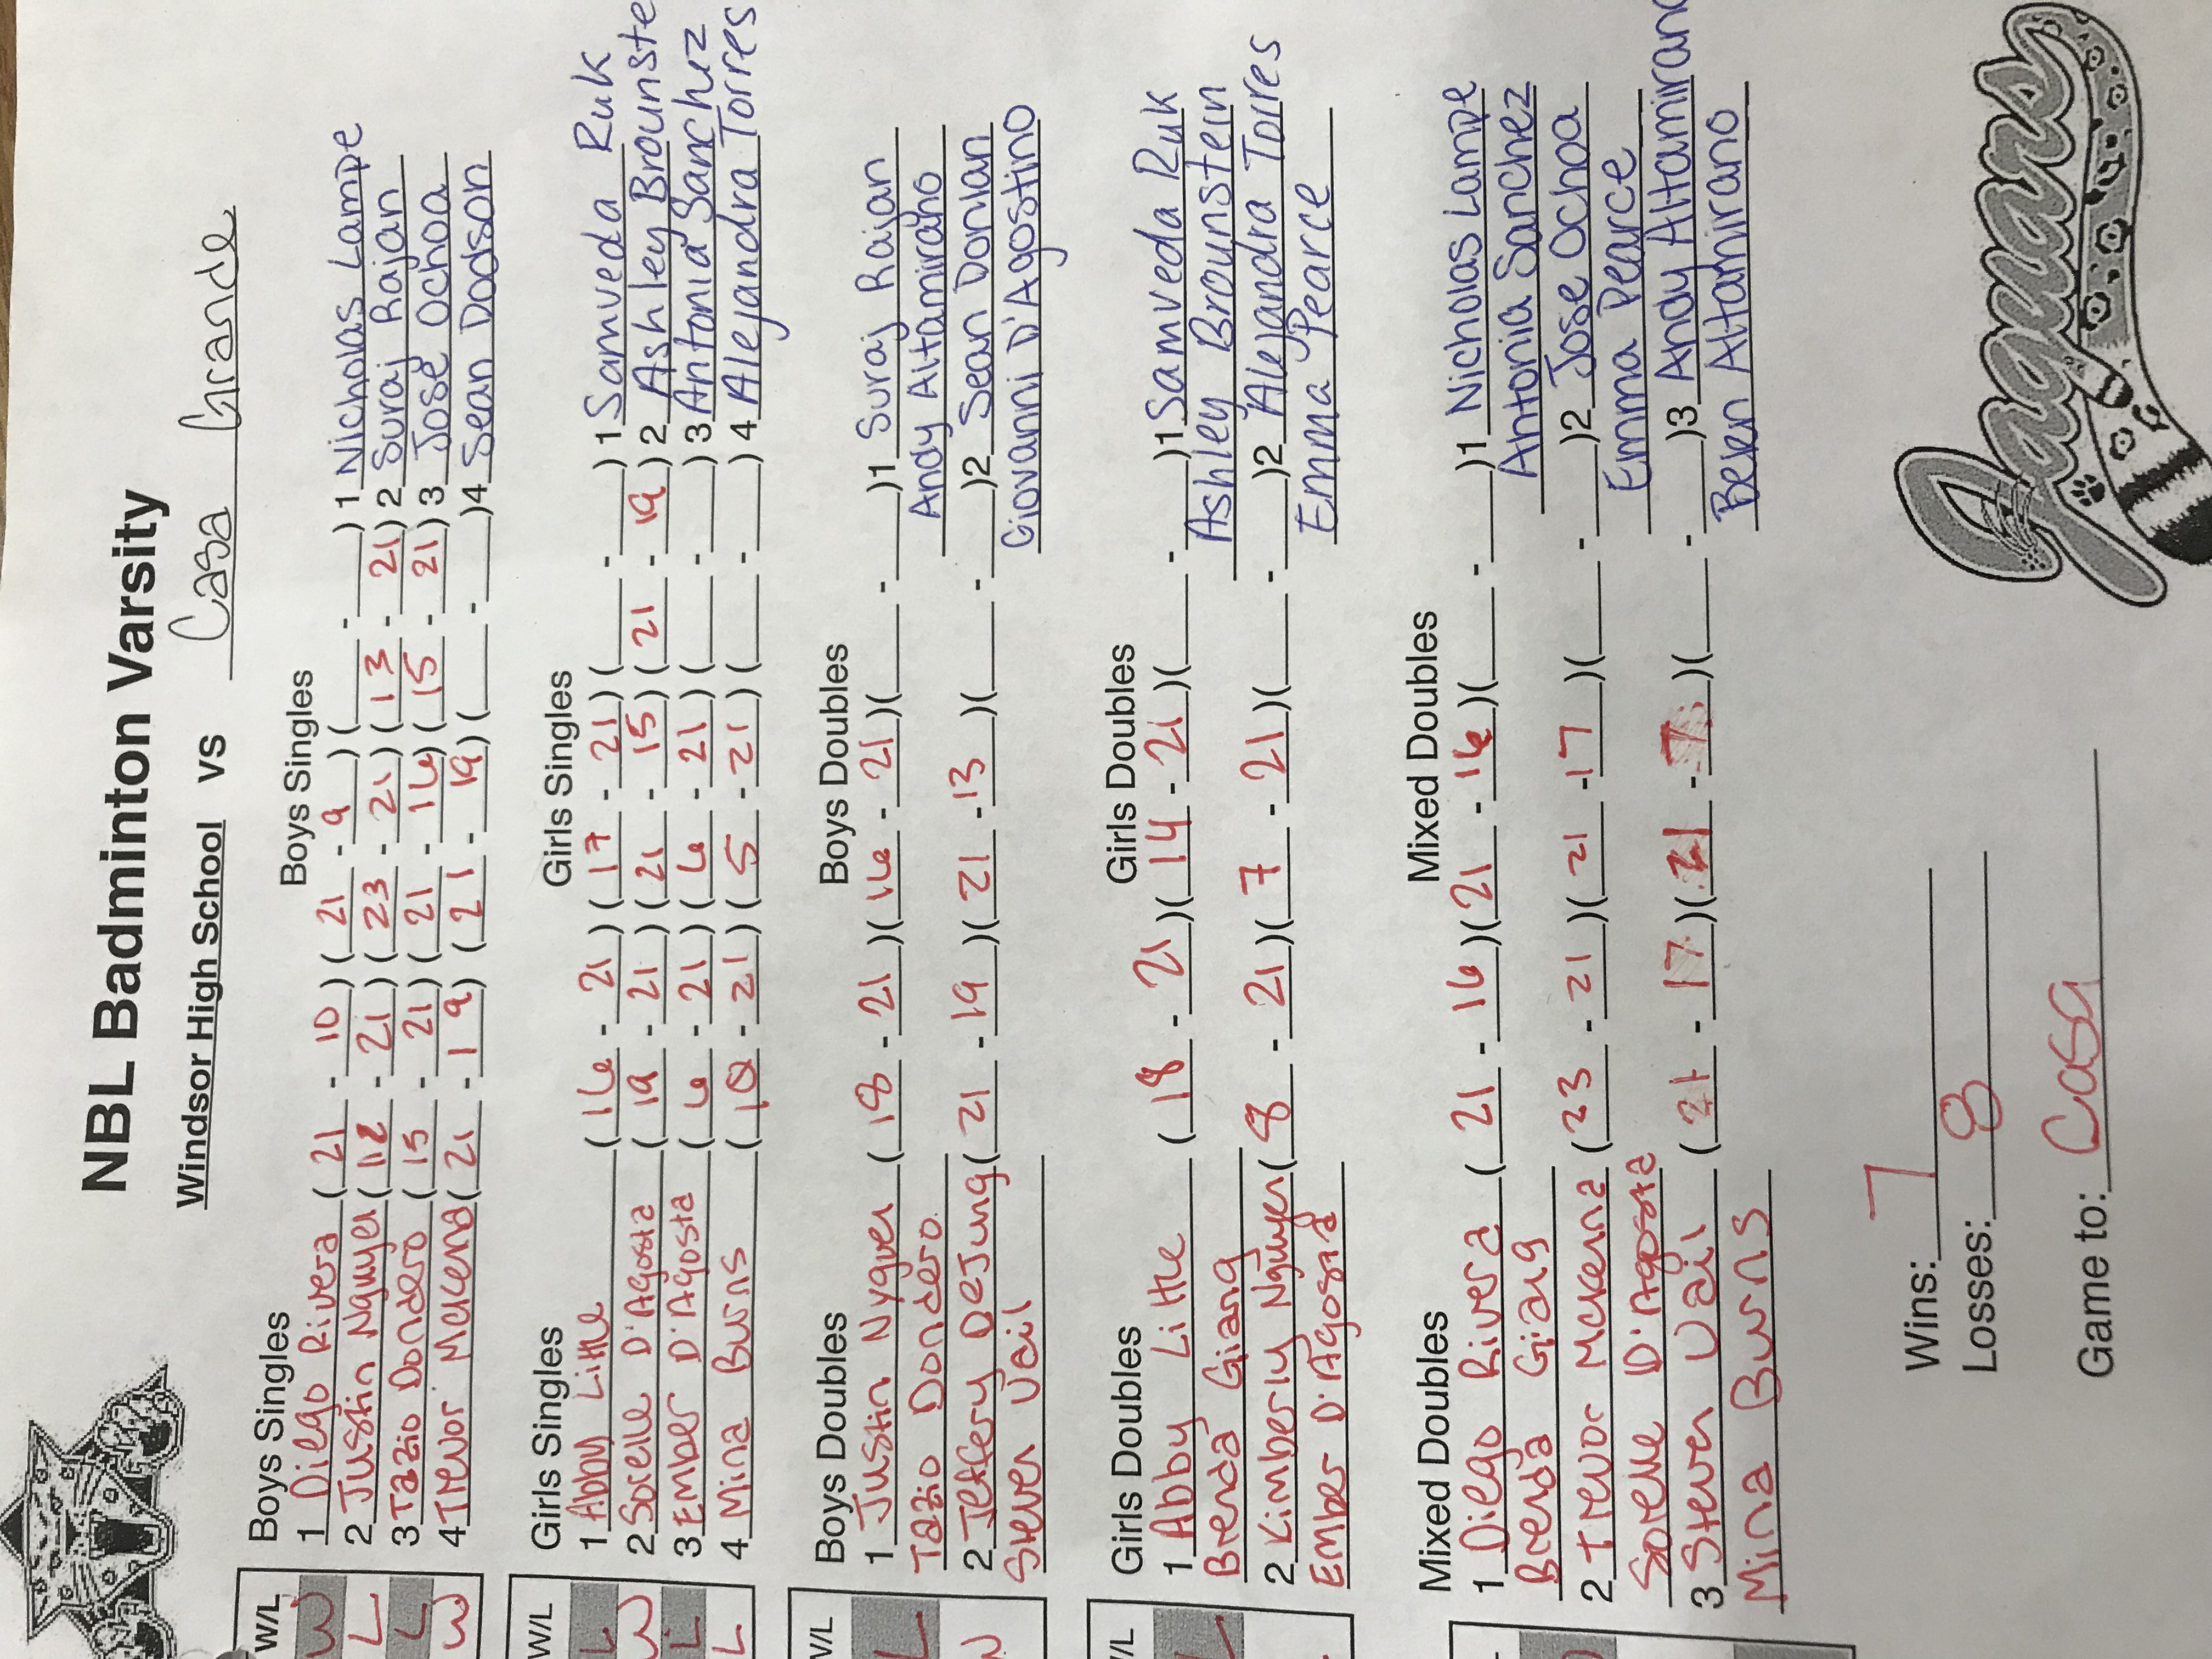 NBL Badminton Varsity
Windsor High School vs Casa Grande
W/L Boys Singles Boys Singles
W 1 Diego Rivera (21 - 10) (21 - 9) ( - ) 1 Nicholas Lampe
L 2 Justin Nguyen (12 - 21) (23 - 21) (13 - 21) 2 Suraj Rajan
L 3 Tazio Dondero (15 - 21) (21 - 16) (15 - 21) 3 Jose Ochoa
W 4 Trevor McKenna (21 - 19) (21 - 19) ( - ) 4 Sean Dodson
W/L Girls Singles Girls Singles
L 1 Abby Little (16 - 21) (17 - 21) ( - ) 1 Samveda Ruk
W 2 Sorelle D'Agosta (19 - 21) (21 - 15) (21 - 19) 2 Ashley Brounste
L 3 Ember D'Agosta (6 - 21) (6 - 21) ( - ) 3 Antonia Sanchez
L 4 Mina Burns (10 - 21) (5 - 21) ( - ) 4 Alejandra Torres
W/L Boys Doubles Boys Doubles
L 1 Justin Nyguen (18 - 21) (16 - 21) ( - ) 1 Suraj Rajan
Tazio Dondero Andy Altamirano
W 2 Jeffery DeJung (21 - 19) (21 - 13) ( - ) 2 Sean Donlan
Steven Vail Giovanni D'Agostino
W/L Girls Doubles Girls Doubles
L 1 Abby Little (18 - 21) (14 - 21) ( - ) 1 Samveda Ruk
Brenda Giang Ashley Brounstein
2 Kimberly Nguyen (8 - 21) (7 - 21) ( - ) 2 Alejandra Torres
Ember D'Agosta Emma Pearce
Mixed Doubles Mixed Doubles
1 Diego Rivera (21 - 16) (21 - 16) ( - ) 1 Nicholas Lampe
Brenda Giang Antonia Sanchez
2 Trevor McKenna (23 - 21) (21 - 17) ( - ) 2 Jose Ochoa
Sorelle D'Agosta Emma Pearce
3 Steven Vail (21 - 17) (21 - 7) ( - ) 3 Andy Altamirano
Mina Burns Ben Altamirano
Wins: 7
Losses: 8
Game to: Casa
Jaguars